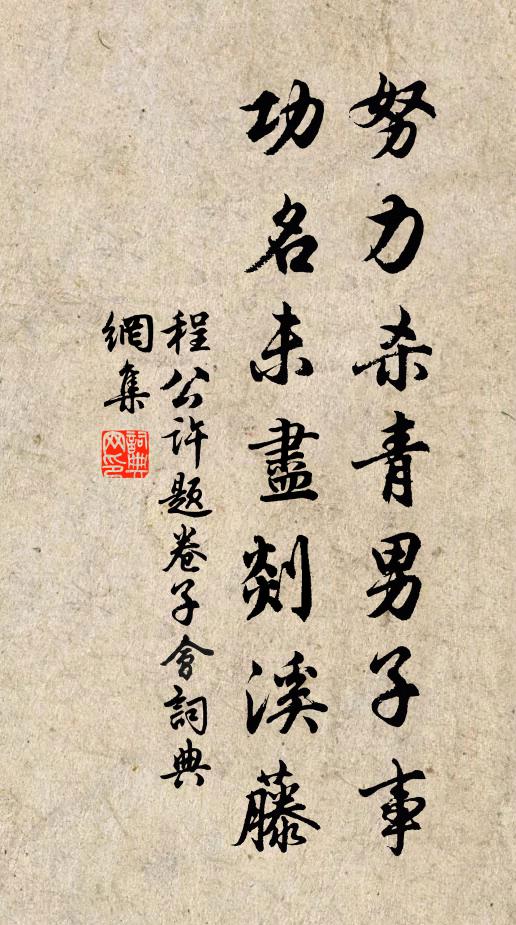 努力杀青男子事
功名未盡剡溪藤
程公许题卷子會詞典
網集
詞典网印